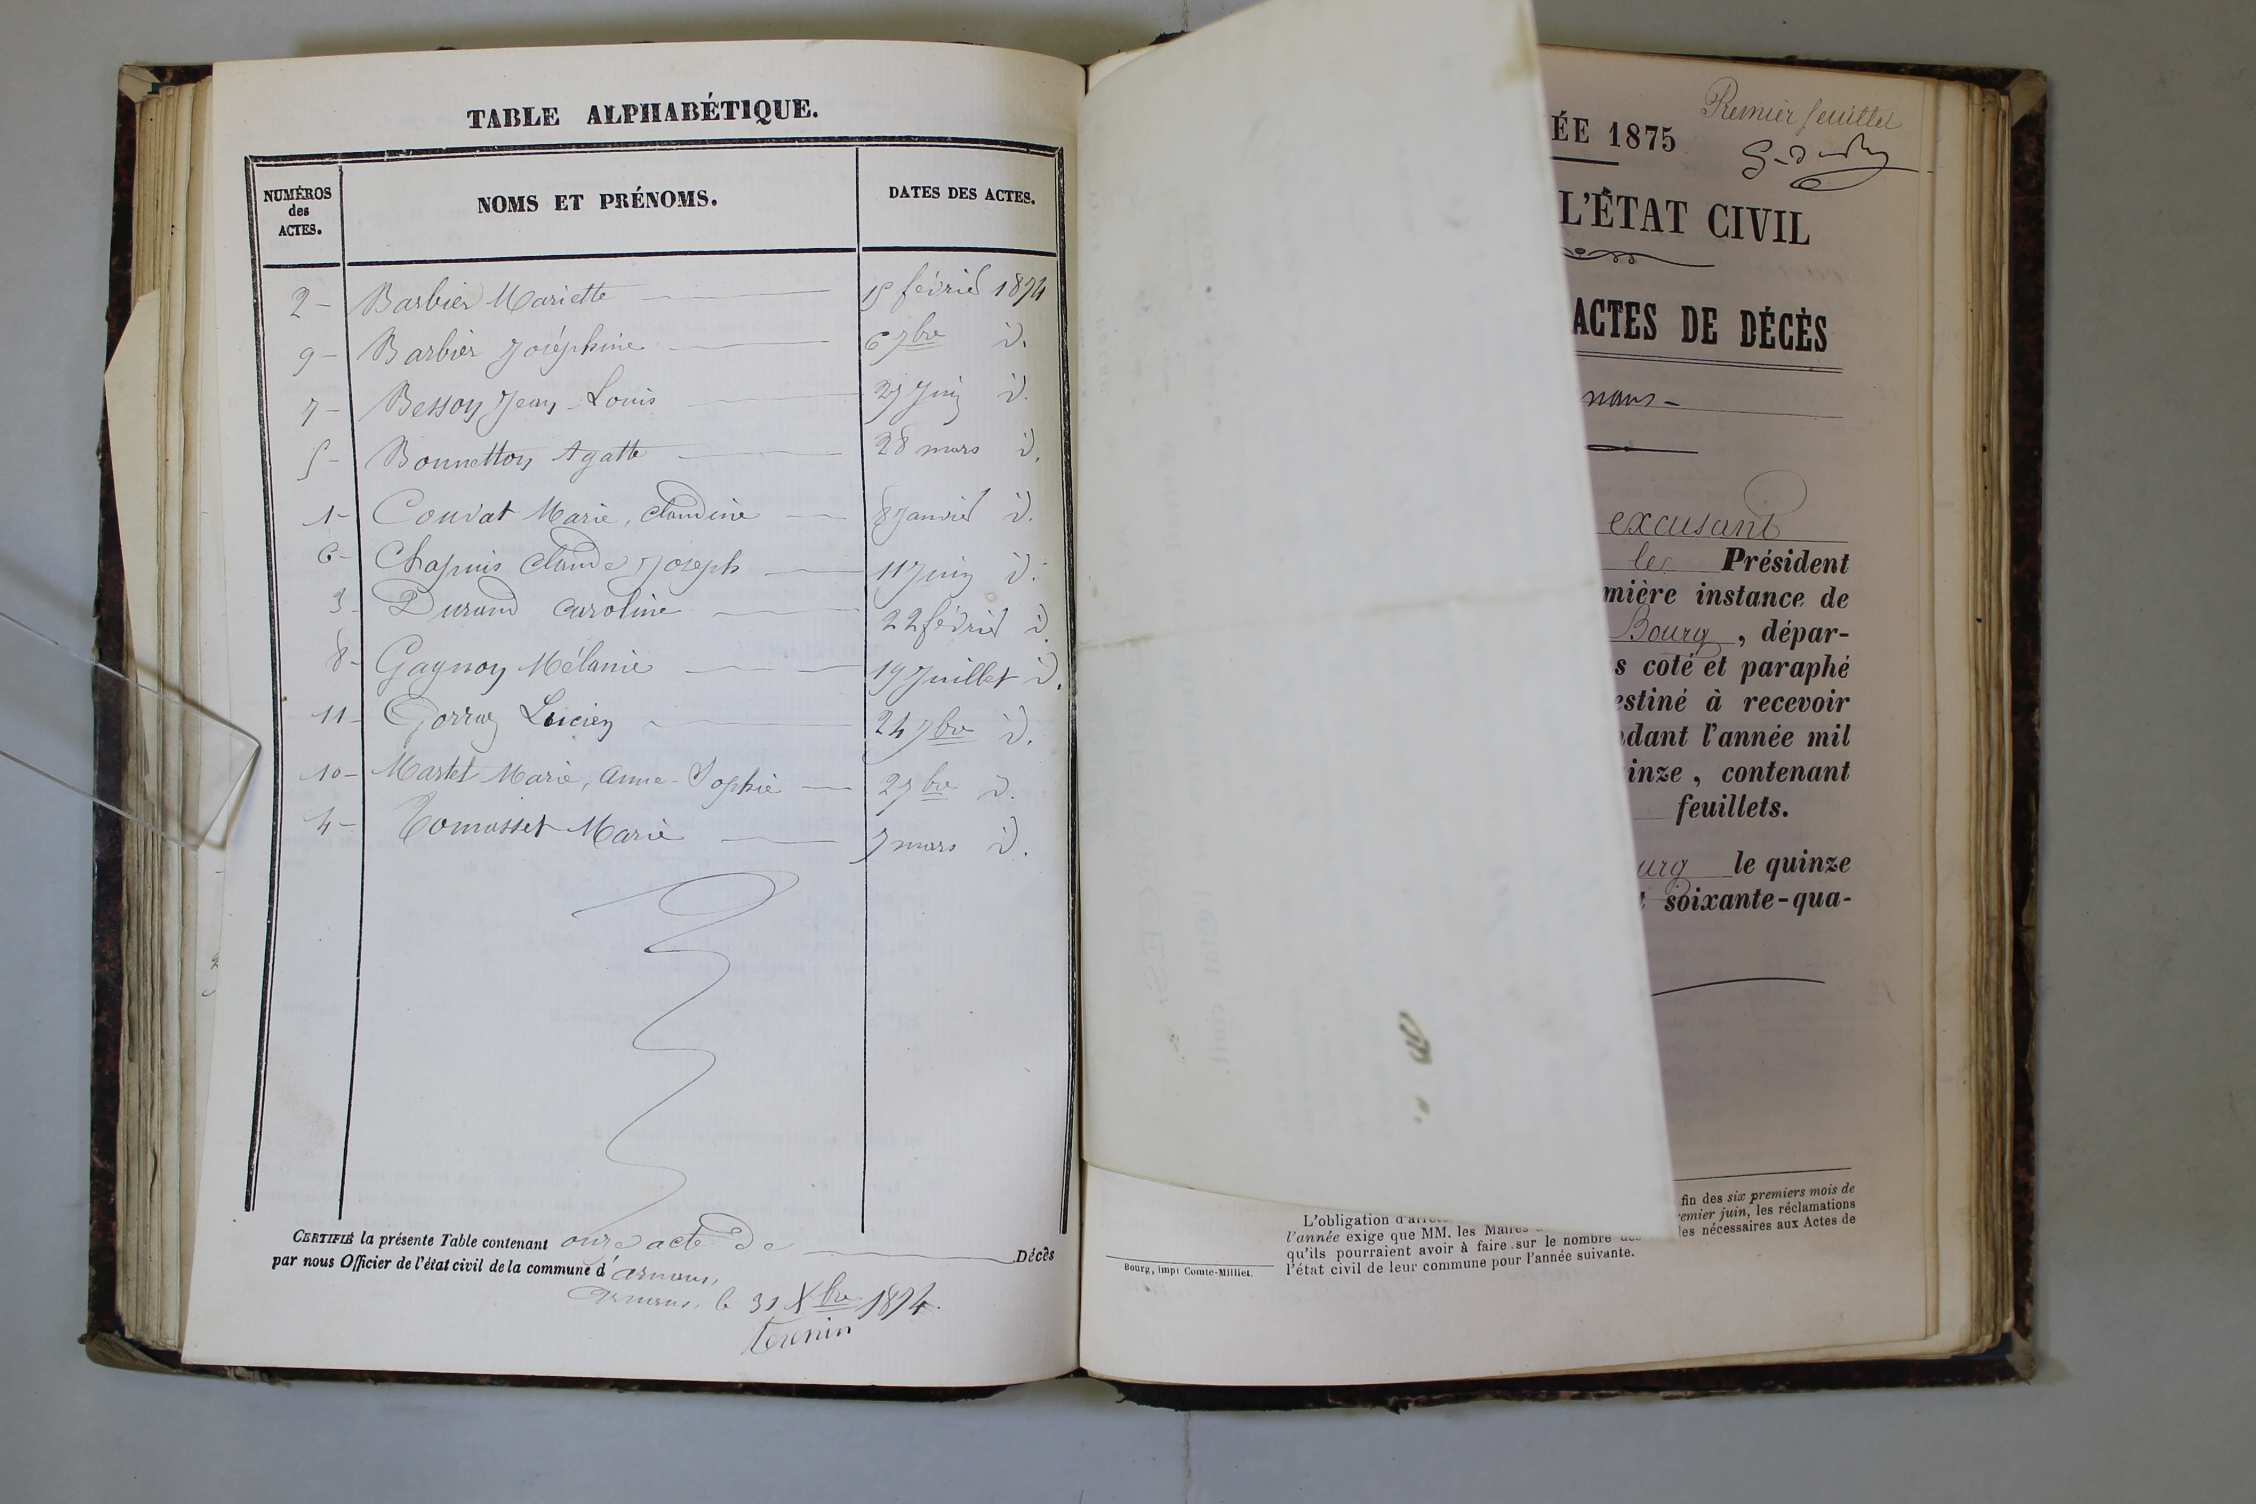 TABLE ALPHABÉTIQUE.
NUMÉROS
des
ACTES.
NOMS ET PRÉNOMS.
DATES DES ACTES.
2 - Barbier Mariette 18 février 1874
9 - Barbier Joséphine 6 7bre id.
7 - Besson Jean-Louis 27 Juin id.
5 - Bonnetton Agatte 28 mars id.
1 - Couvat Marie, Claudine 8 Janvier id.
6 - Chapuis Claude Joseph 11 Juin id.
3 - Durand Caroline 22 février id.
8 - Gagnon Mélanie 19 Juillet id.
11 - Lucien 24 7bre id.
10 - Martet Marie, Anne-Sophie 7bre id.
4 - Tomasset Marie 7 mars id.
CERTIFIÉ la présente Table contenant onze acte de Décès
par nous Officier de l'état civil de la commune d'arnans,
arnans, le 31 Xbre 1874.
Premier feuillet
ÉE 1875
L'ÉTAT CIVIL
ACTES DE DÉCÈS
nans -
excusant
le Président
mière instance de
Bourg, dépar-
s coté et paraphé
estiné à recevoir
dant l'année mil
inze, contenant
feuillets.
urg le quinze
soixante-qua-
fin des six premiers mois de
L'obligation d'arrêt
emier juin, les réclamations
l'année exige que MM. les Maires
qu'ils pourraient avoir à faire sur le nombre des
les nécessaires aux Actes de
l'état civil de leur commune pour l'année suivante.
Bourg, impr Comte-Milliet.